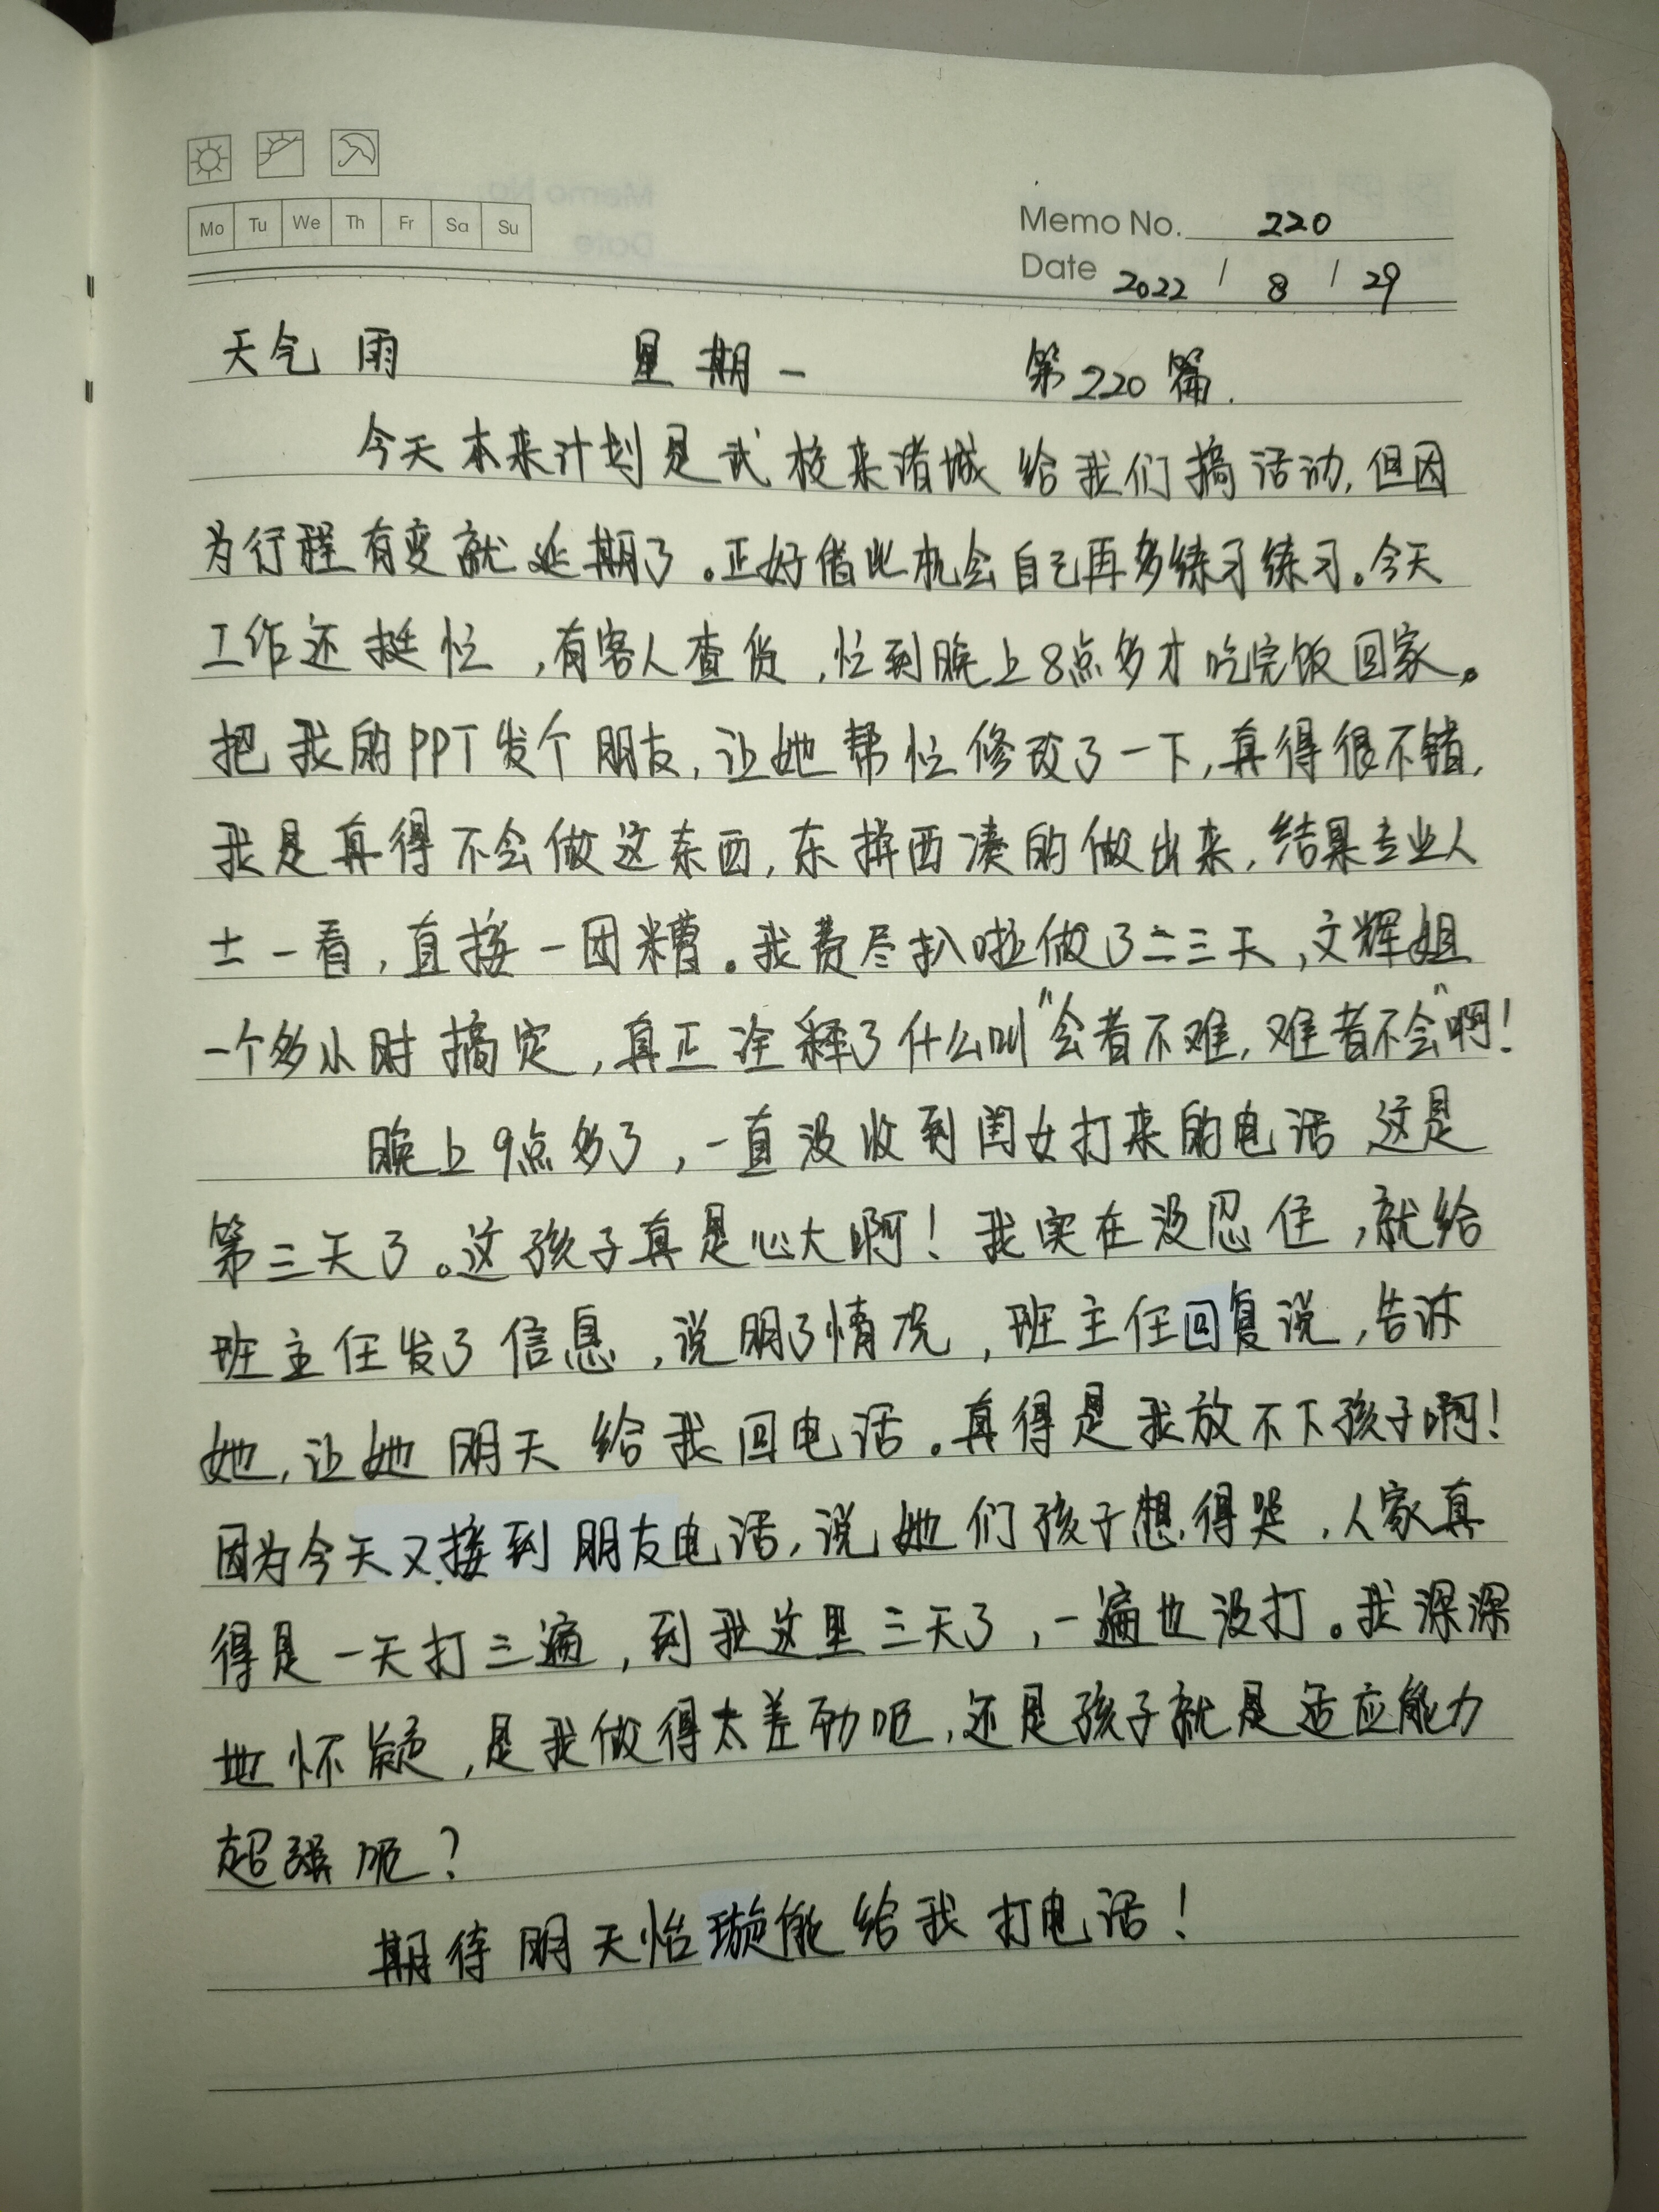 Mo Tu We Th Fr Sa Su
Memo No. 220
Date 2022 / 8 / 29
天气 雨 星期一 第220篇.
今天本来计划是武校来诸城给我们搞活动,但因
为行程有变就延期了。正好借此机会自己再多练习练习。今天
工作还挺忙,有客人查货,忙到晚上8点多才吃完饭回家。
把我的PPT发个朋友,让她帮忙修改了一下,真得很不错,
我是真得不会做这东西,东拼西凑的做出来,结果专业人
士一看,直接一团糟。我费尽扒啦做了二三天,文辉姐
一个多小时搞定,真正诠释了什么叫"会者不难,难者不会"啊!
晚上9点多了,一直没收到闺女打来的电话 这是
第三天了。这孩子真是心大啊!我实在没忍住,就给
班主任发了信息,说明了情况,班主任回复说,告诉
她,让她明天给我回电话。真得是我放不下孩子啊!
因为今天又接到朋友电话,说她们孩子想得哭,人家真
得是一天打三遍,到我这里三天了,一遍也没打。我深深
地怀疑,是我做得太差劲呢,还是孩子就是适应能力
超强呢?
期待明天怡璇能给我打电话!